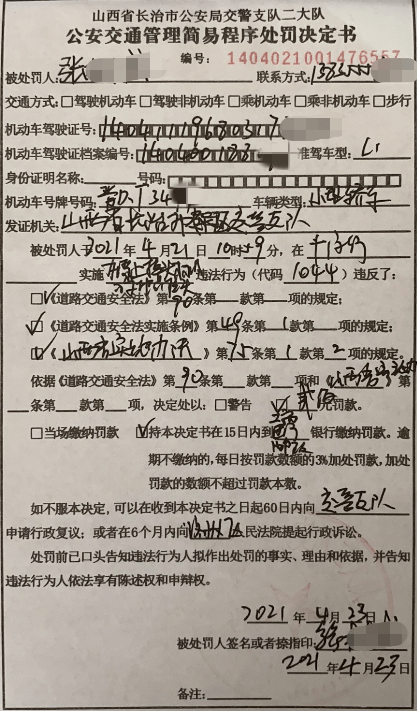 山西省长治市公安局交警支队二大队
公安交通管理简易程序处罚决定书
编号：1404021001476557
被处罚人：张 联系方式：
交通方式：□驾驶机动车□驾驶非机动车□乘机动车□乘非机动车□步行
机动车驾驶证号：
机动车驾驶证档案编号：140400188 准驾车型：C1
身份证明名称： 号码：
机动车号牌号码：晋D.T34 车辆类型：小型轿车
发证机关：山西省长治市 交警支队
被处罚人于2021年4月21日10时59分，在
实施 违法行为（代码1044）违反了：
☑《道路交通安全法》第90条 款第 项的规定；
☑《道路交通安全法实施条例》第49条第1款第 项的规定；
☑《山西省实施办法》第75条第1款第2项的规定。
依据《道路交通安全法》第90条第 款第 项和《山西省 》第
条第 款第 项，决定处以：□警告 ☑贰佰元罚款。
□当场缴纳罚款 ☑持本决定书在15日内到 银行缴纳罚款。逾
期不缴纳的，每日按罚款数额的3%加处罚款，加处
罚款的数额不超过罚款本数。
如不服本决定，可以在收到本决定书之日起60日内向交警支队
申请行政复议；或者在6个月内向潞州区人民法院提起行政诉讼。
处罚前已口头告知违法行为人拟作出处罚的事实、理由和依据，并告知
违法行为人依法享有陈述权和申辩权。
2021年4月23日
被处罚人签名或者捺指印：张
2021年4月23日
备注：